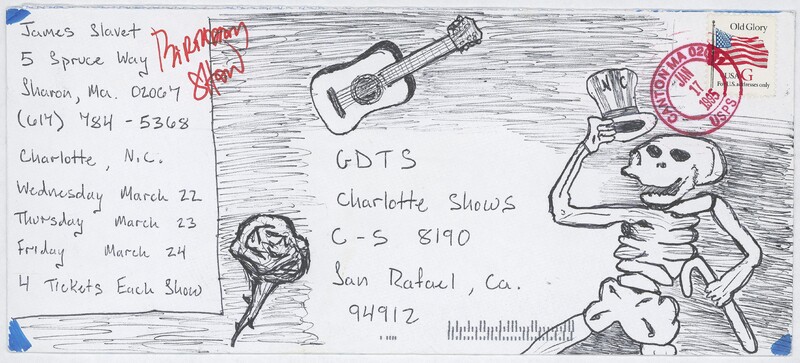 James Slavet
5 Spruce Way
Sharon, Ma. 02067
(617) 784-5368
Birthday
Show
Charlotte, N.C.
Wednesday March 22
Thursday March 23
Friday March 24
4 Tickets Each Show
GDTS
Charlotte Shows
C-S 8190
San Rafael, Ca.
94912
N C
Old Glory
USA G
For U.S. addresses only
CANTON MA
JAN
17
1995
USPS